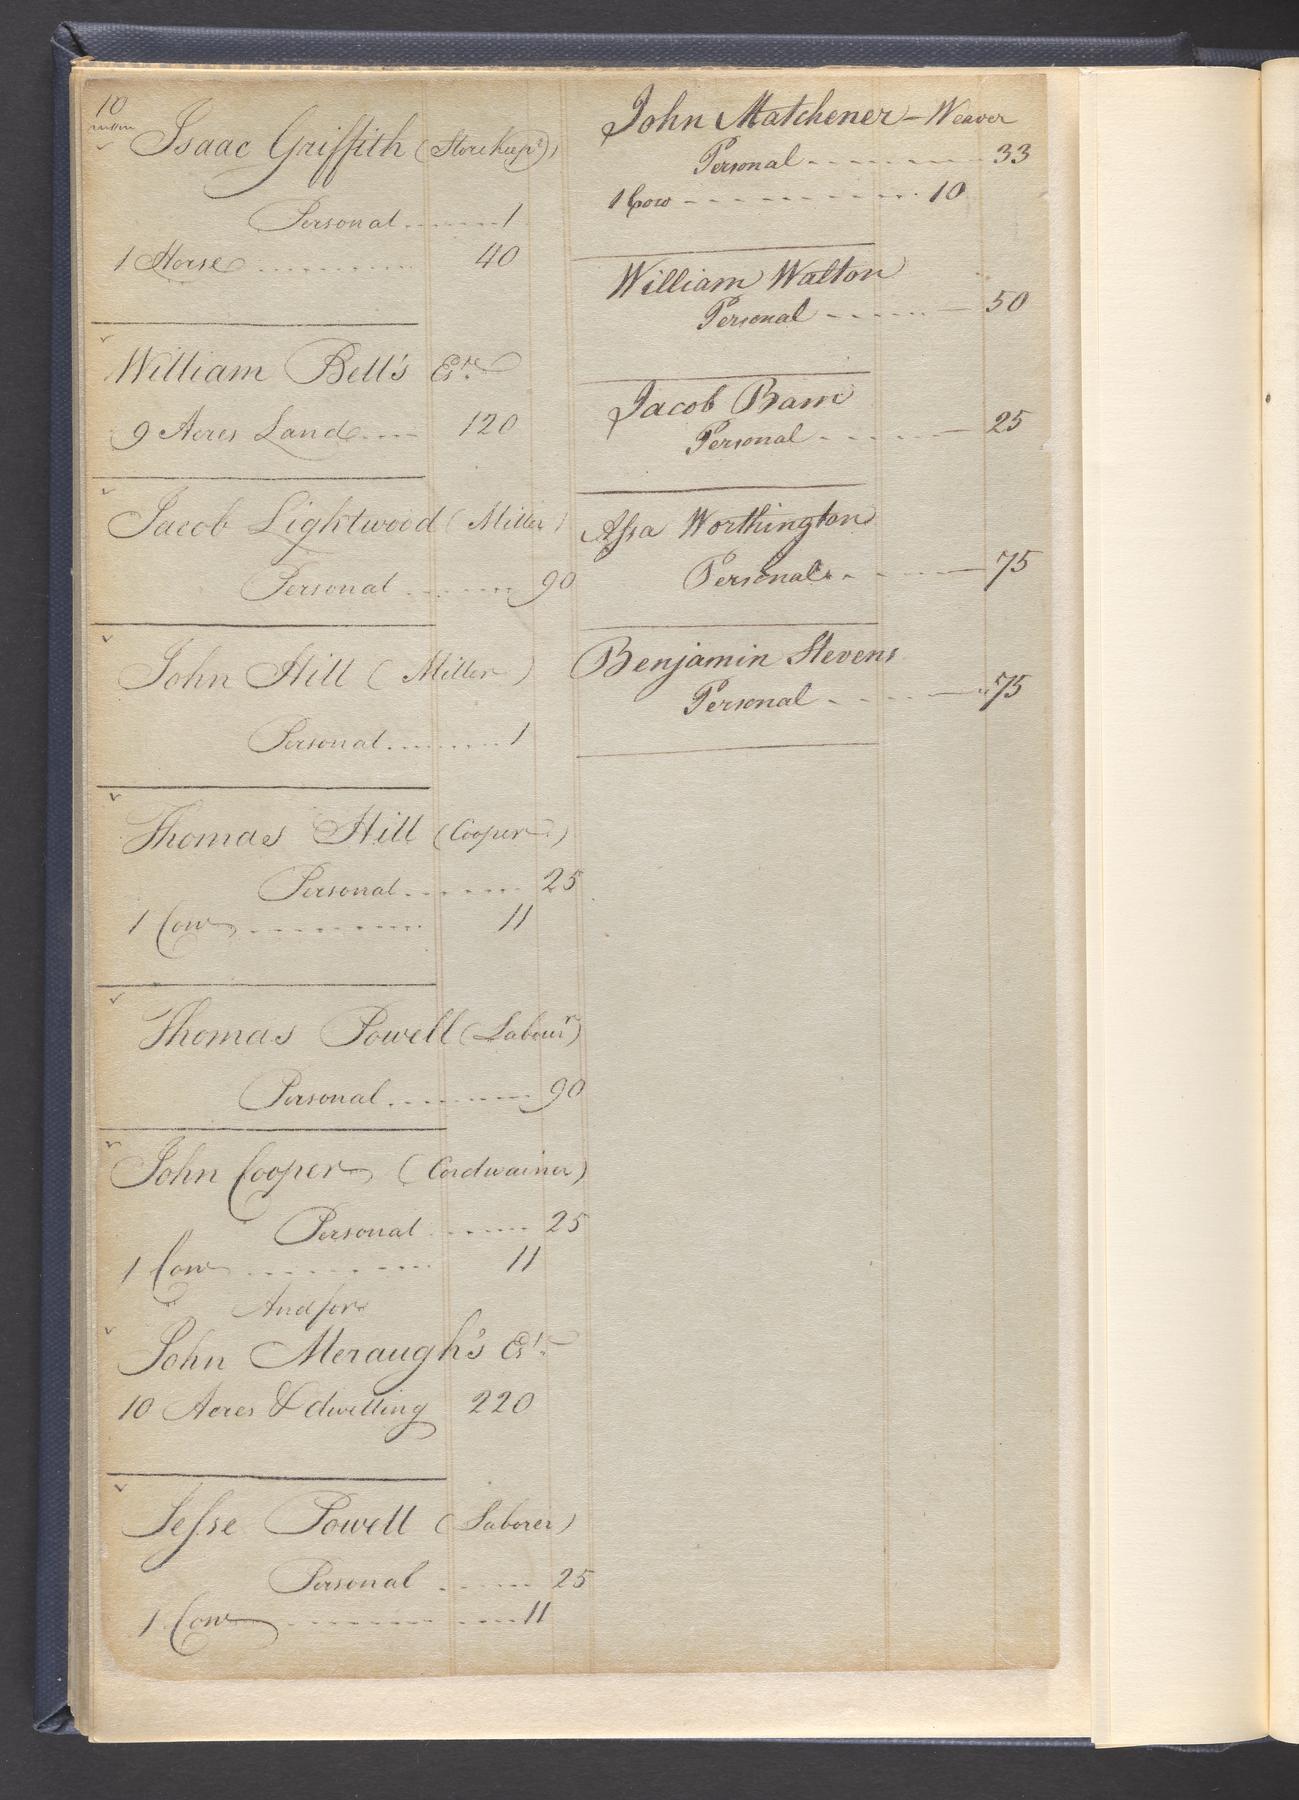 10
Isaac Griffith (Storekeepr)
Personal ........ 1
1 Horse ........ 40
William Bell's Est.
9 Acres Land .... 120
Jacob Lightwood (Miller)
Personal ........ 90
John Hill (Miller)
Personal ........ 1
Thomas Hill (Cooper)
Personal ........ 25
1 Cow ........ 11
Thomas Powell (Labourr)
Personal ........ 90
John Cooper (Cordwainer)
Personal ........ 25
1 Cow ........ 11
And for
John Meraugh's Est.
10 Acres & dwelling 220
Jesse Powell (Laborer)
Personal ........ 25
1 Cow ........ 11
John Matchener - Weaver
Personal ........ 33
1 Cow ........ 10
William Walton
Personal ........ 50
Jacob Bam
Personal ........ 25
Assa Worthington
Personal ........ 75
Benjamin Stevens
Personal ........ 75